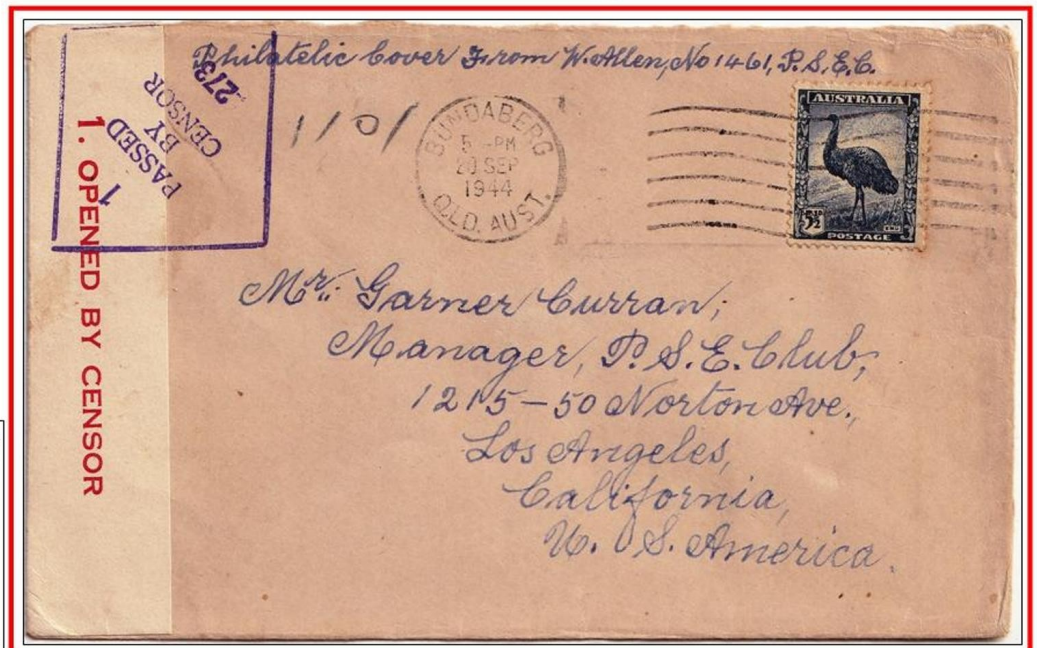 Philatelic Cover From W. Allen, No 1461, P.S.E.C.
1
PASSED
BY
CENSOR
273
1. OPENED BY CENSOR
1101
BUNDABERG
5 - PM
20 SEP
1944
QLD. AUST.
AUSTRALIA
5½D
POSTAGE
Mr. Garner Curran,
Manager, P.S.E. Club,
1215-50 Norton Ave.,
Los Angeles,
California,
U. S. America.